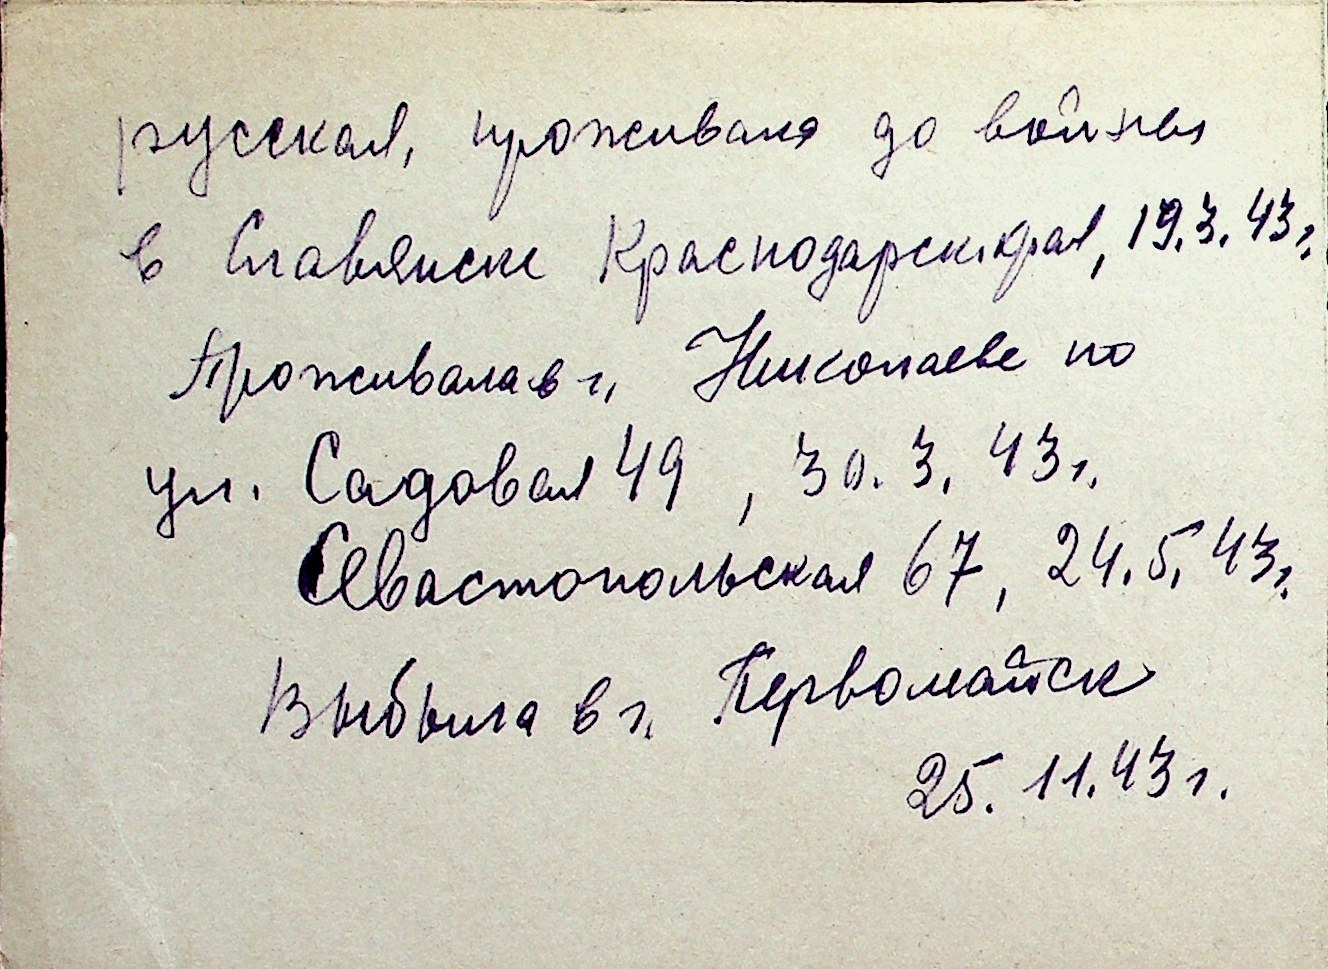 русская, проживала до войны
в Славянске Краснодарск. края, 19.3.43г.
Проживала в г. Николаеве по
ул. Садовая 49, 30.3.43г.
Севастопольская 67, 24.5.43г.
Выбыла в г. Первомайск
25.11.43г.